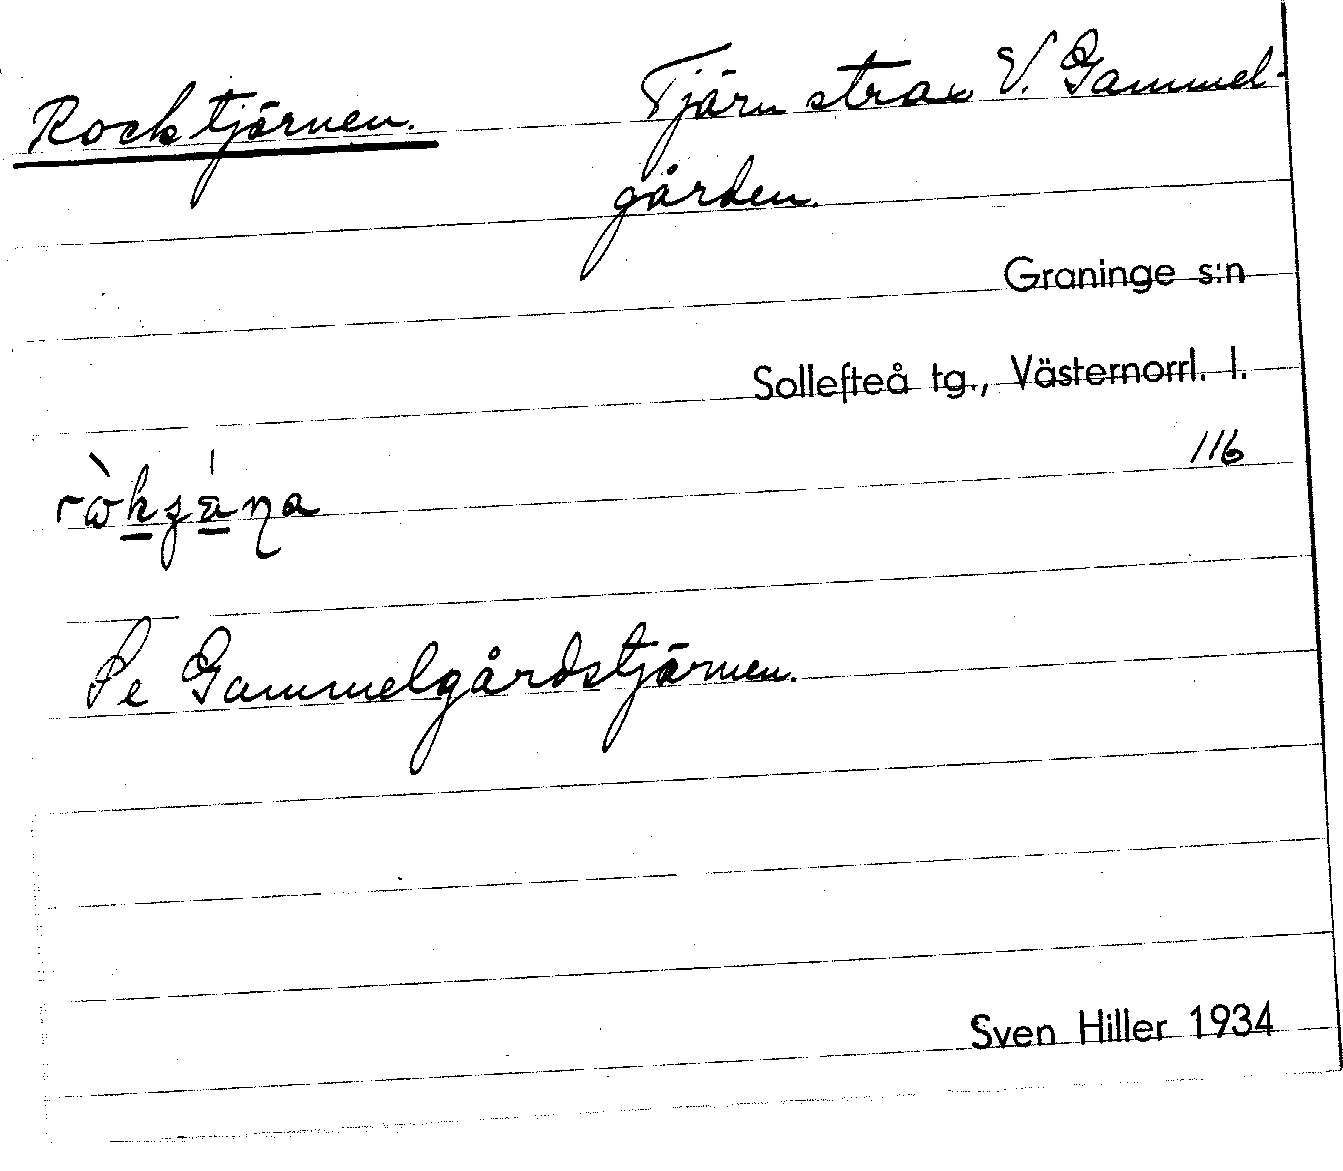 Rocktjärnen.
Tjärn strax V. Gammel-
gården.
Graninge s:n
Sollefteå tg., Västernorrl. l.
116
Se Gammelgårdstjärnen.
Sven Hiller 1934